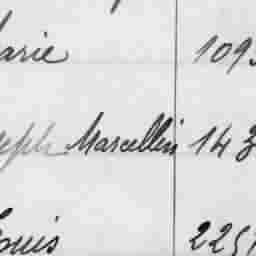 arie 109
seph Marcellin 143
Louis 2257